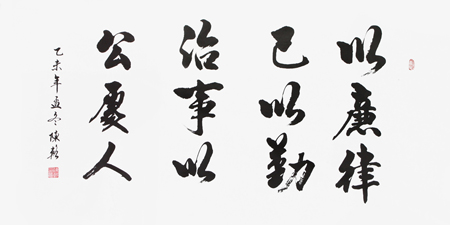 以廉律
己以勤
治事以
公處人
乙未年孟冬陳乾